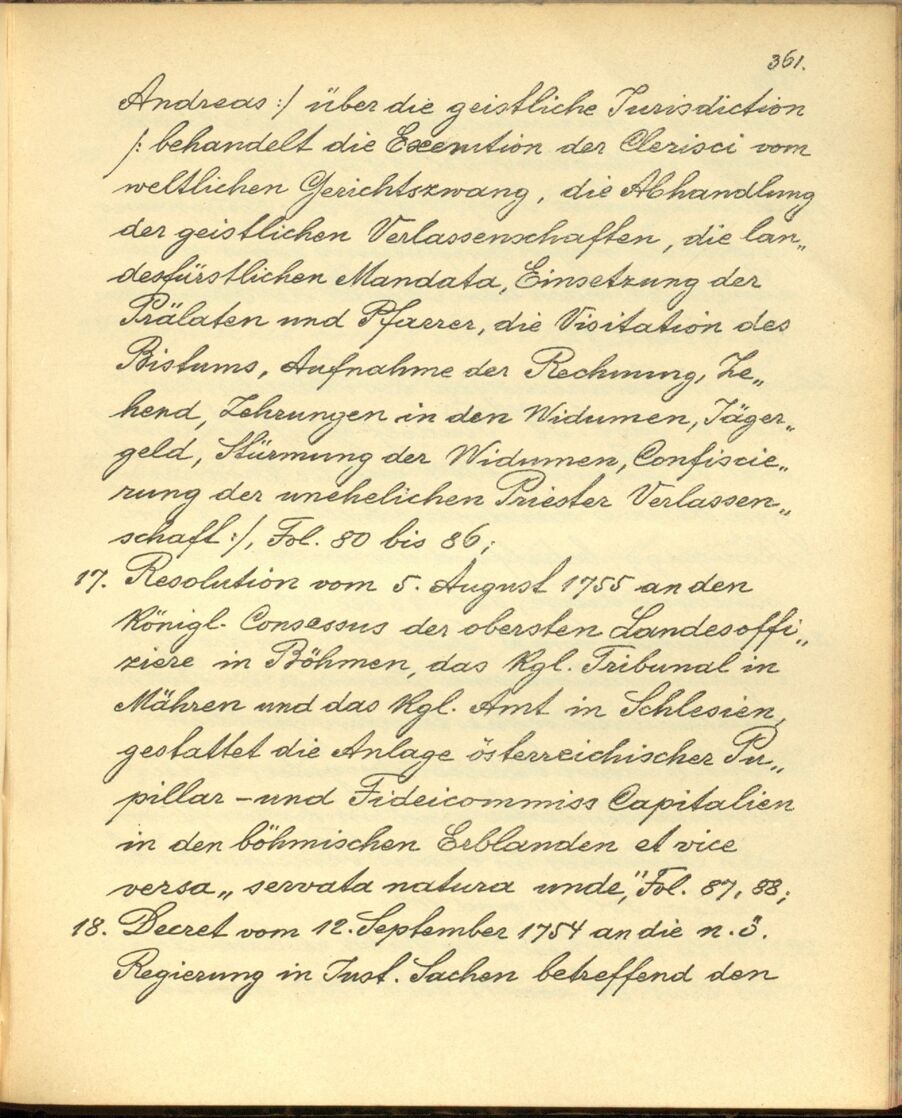 361.
Andreas :/ über die geistliche Jurisdiction
/: behandelt die Exemtion der Clerisei vom
weltlichen Gerichtszwang, die Abhandlung
der geistlichen Verlassenschaften, die lan„
desfürstlichen Mandata, Einsetzung der
Prälaten und Pfarrer, die Visitation des
Bistums, Aufnahme der Rechnung, Ze„
hend, Zehrungen in den Widumen, Jäger„
geld, Stürmung der Widumen, Confiscie„
rung der unehelichen Priester Verlassen„
schaft :/, Fol. 80 bis 86;
17. Resolution vom 5. August 1755 an den
Königl. Consessus der obersten Landesoffi„
ziere in Böhmen, das kgl. Tribunal in
Mähren und das kgl. Amt in Schlesien,
gestattet die Anlage österreichischer Pu„
pillar - und Fideicommiss Capitalien
in den böhmischen Erblanden et vice
versa „ servata natura unde", Fol. 87, 88;
18. Decret vom 12. September 1754 an die n.ö.
Regierung in Just. Sachen betreffend den